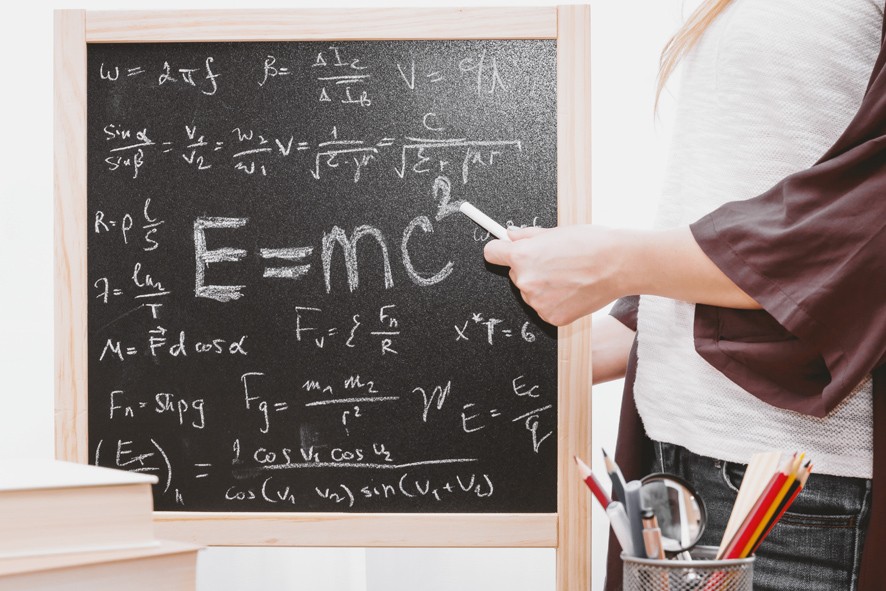 ω = 2πf β = ΔI₂/ΔI_B V = c/λ
sin α/sin β = v₁/v₂ = w₂/w₁ V = 1/√(ε·μ) = c/√(ε_r μ_r)
R = ρ l/S
E = mc²
λ = ln₂/T
M = F⃗ d cos α F_v = ξ F_n/R x*T = 6
F_n = shρg F_g = m₁ m₂/r² E = E_c/q
(E)ₙ = 1 cos v₁ cos v₂/cos(v₁ v₂) sin(v₁+v₂)